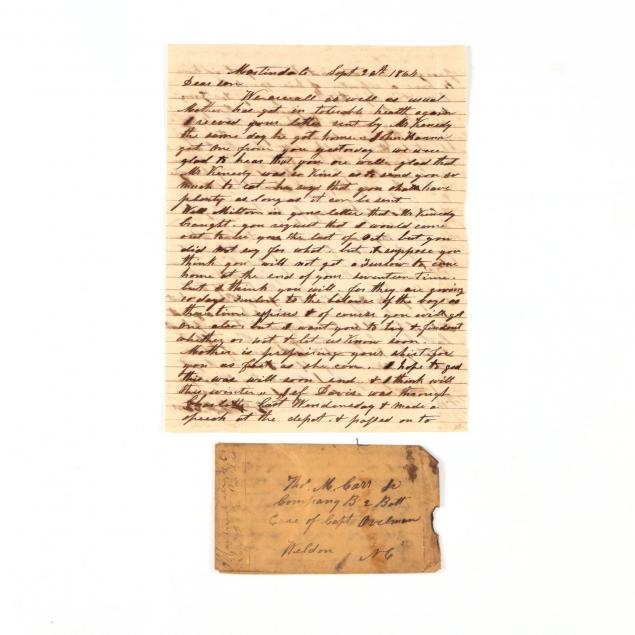 Martindale Sept 24th 1864
Dear son
We are all as well as usual
Mother has got in tolerable health again
I receivd your letter sent by Mr Kenedy
the same day he got home. John
got one from you yesterday we were
glad to hear that you are well. glad that
Mr Kenedy was so kind as to send you so
much to eat. he says that you shall have
plenty as long as it can be sent
Well Milton in your letter that Mr Kenedy
braught. you request that I would come
out to see you the last of Oct. but you
did not say for what. but I suppose you
think you will not get a furlow to come
home at the end of your seventeen time.
but I think you will. for they are giveing
10 days furlow to the balance of the boys as
their time expires & of course you will get
one also but I want you to try & find out
whether or not & let us know soon
Mother is prepairing your shirt for
you as fast as she can. I hope to god
this war will soon end. & I think will
this winter. Jef Davis was through
Charlotte last Wendnesday & made a
speech at the depot. & passed on to
Tho' M. Carr Jr
Company B 2 Batt
Care of Capt
Weldon NC